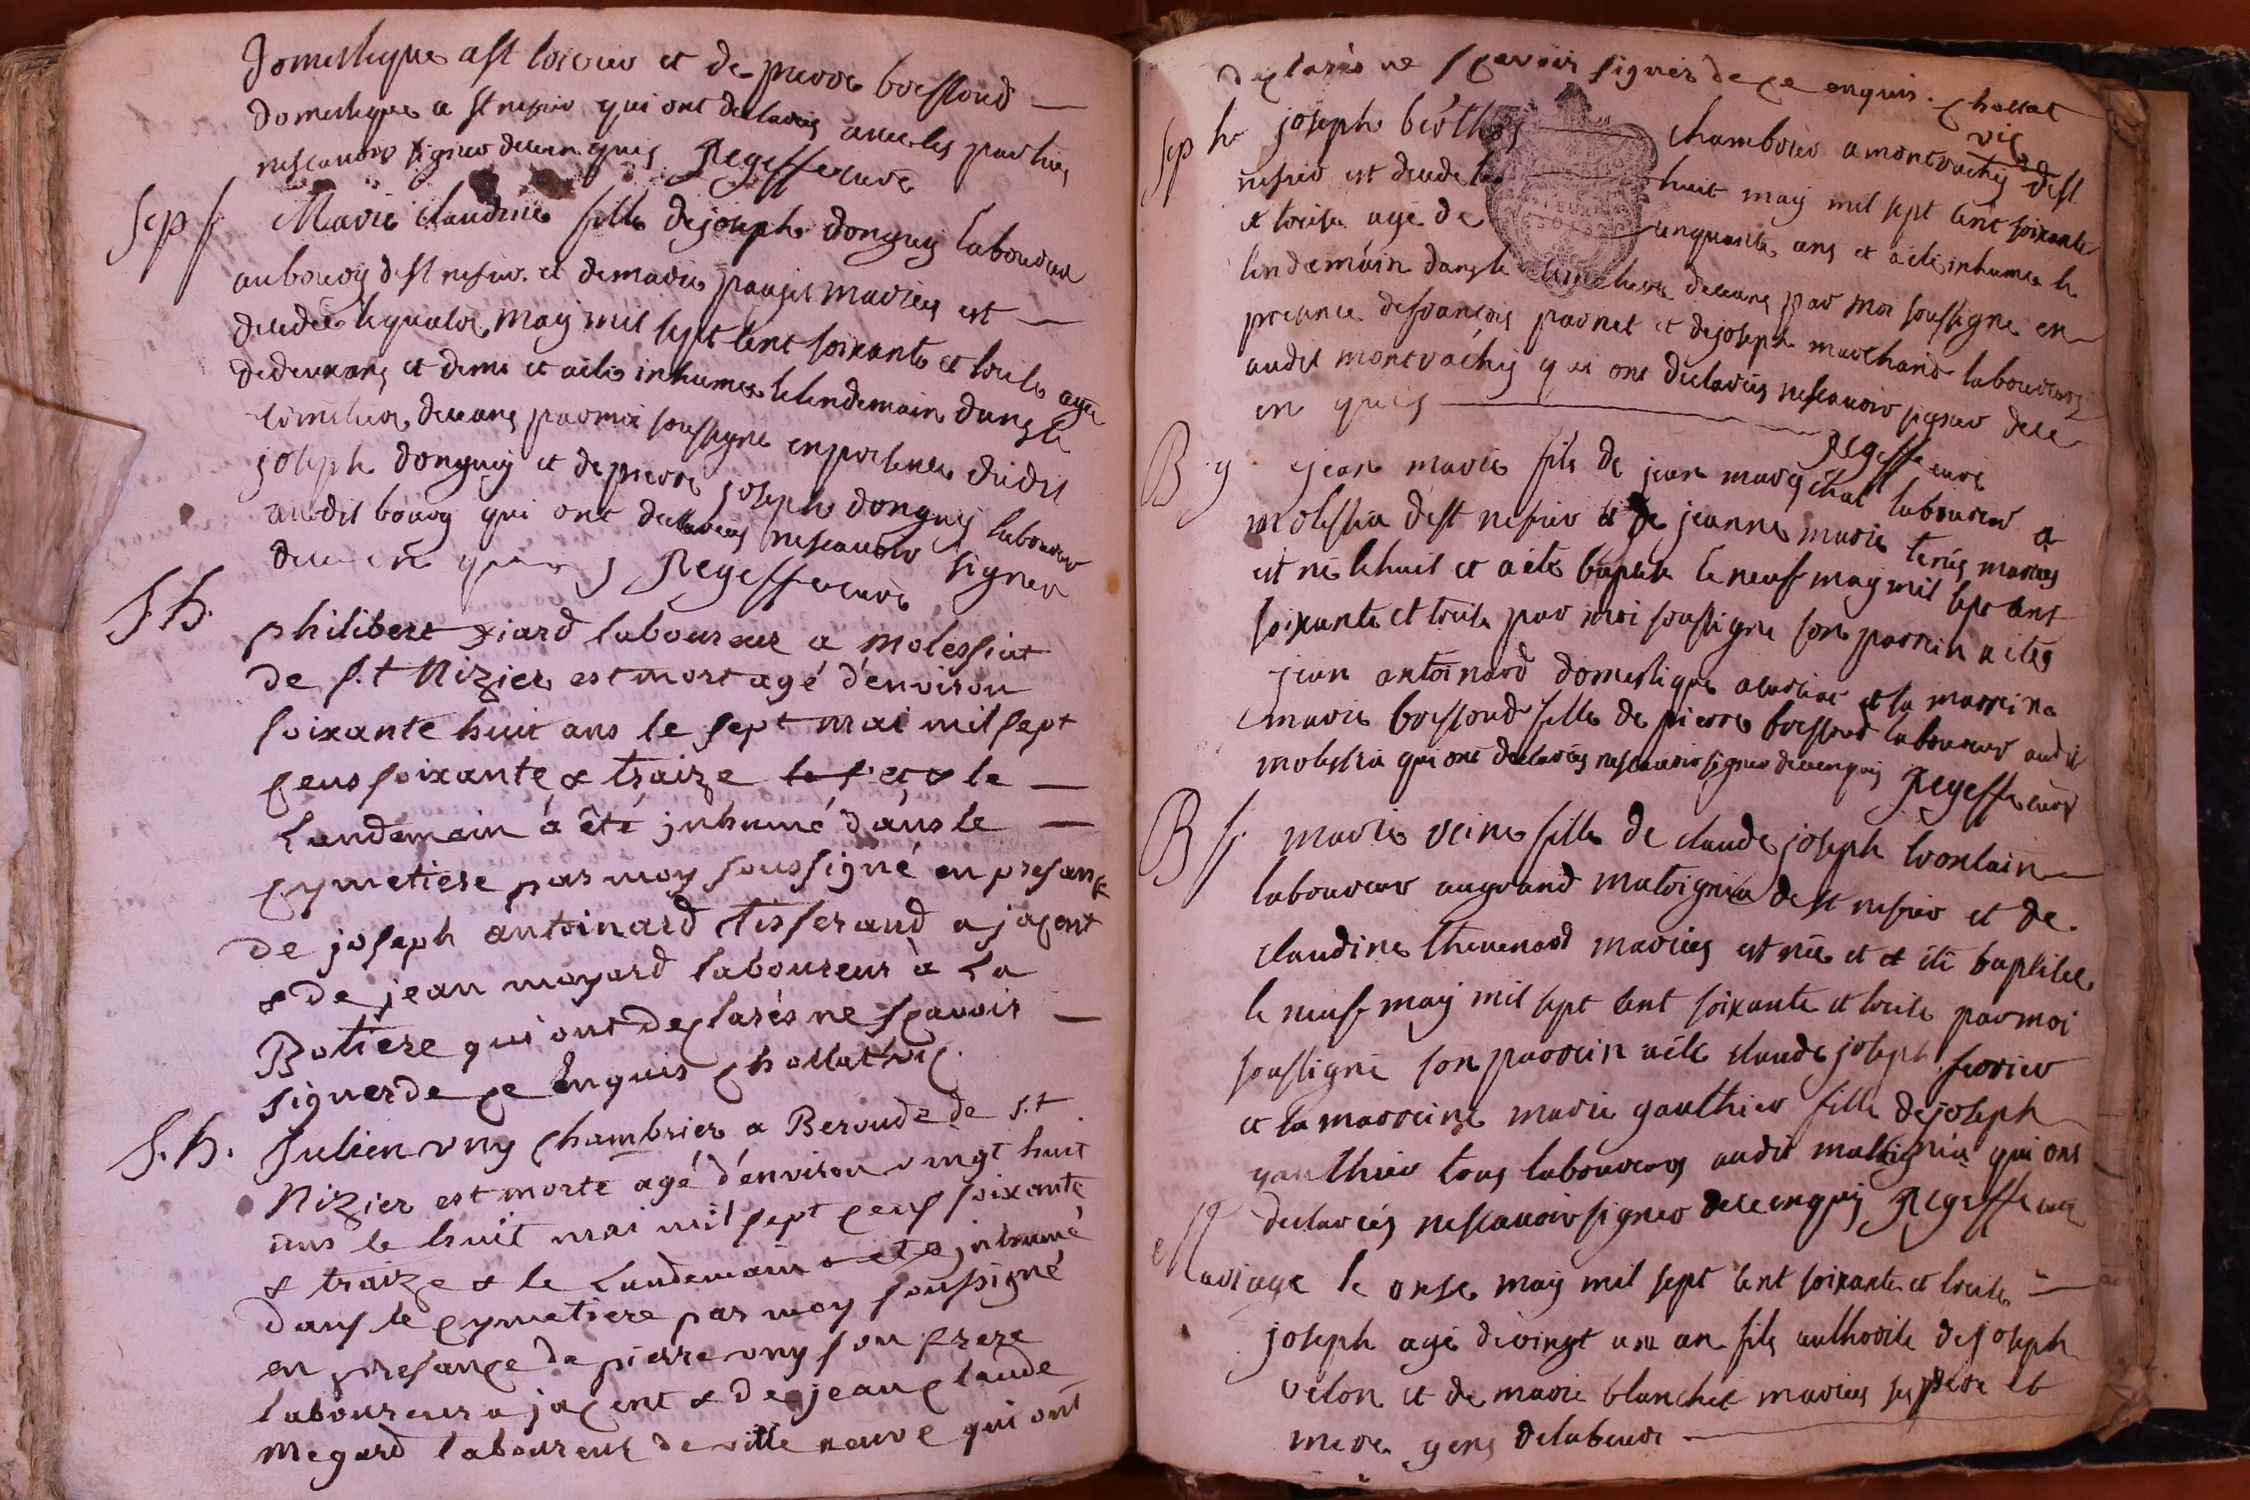 domestique
et de pierre bressoud
domestique a st nisier qui ont declarés avec les parties
ne scavoir signer de ce en quis Regeffe curé
Sep f Marie claudine fille de joseph donguy laboureur
au bourg de st nisier et de marie mariés est
decedée le quatre may mil sept cent soixante et treise agée
de deux ans et demi et a été inhumée le lendemain dans le
cimetiere de ceans par moi soussigné en presence dudit
joseph donguy et de pierre joseph donguy laboureur
audit bourg qui ont declarés ne scavoir signer
de ce en quis Regeffe curé
S. h. philibert laboureur a molessiat
de S.t Nizier est mort agé d'environ
soixante huit ans le sept mai mil sept
cens soixante & traize & le
Landemain a été juhumé dans le
cymetiere par moy soussigné en presance
de joseph antoinard tisserand a jacent
& de jean moyard laboureur à La
Botiere qui ont declarés ne scavoir
signer de ce enquis chollat vic.
S. h. Julien vny chambrier a Beroude de S.t
Nizier est morte agé d'environ vingt huit
ans le huit mai mil sept cens soixante
& traize & le Landemain a été jnhumé
dans le cymetiere par moy soussigné
en presance de pierre vny son frere
laboureur a jacent & de jean claude
Megard laboureur de ville neuve qui ont
declarés ne scavoir signer de ce enquis. chollat
vic
Sep h joseph chambrier a montrachy de st
nisier est decedé huit may mil sept cent soixante
& treise agé de cinquante ans et a été inhumé le
lendemain dans le cimetiere de ceans par moi soussigné en
presence de françois parnet et de joseph marchand laboureurs
audit montrachy qui ont declarés ne scavoir signer de ce
en quis Regeffe curé
B g jean marie fils de jean marechal laboureur a
molessia de st nisier et de jeanne marie mariés
est né le huit et a été baptisé le neuf may mil sept cent
soixante et treise par moi soussigné son parrein a été
jean antoinard domestique et la marreine
marie bressoud fille de pierre bressoud laboureur audit
molessia qui ont declarés ne scavoir signer de ce en quis Regeffe curé
B f. marie reine fille de claude joseph
laboureur au grand matoignia de st nisier et de
claudine thevenard mariés est née et a été baptisée
le neuf may mil sept cent soixante et treise par moi
soussigné son parrein a été claude joseph ferrier
et la marreine marie gauthier fille de joseph
gauthier tous laboureurs audit qui ont
declarés ne scavoir signer de ce enquis Regeffe curé
Mariage le onse may mil sept cent soixante et treise
joseph agé de vingt un an fils authorisé de joseph
velon et de marie blanchet mariés ses pere et
mere gens de labeure